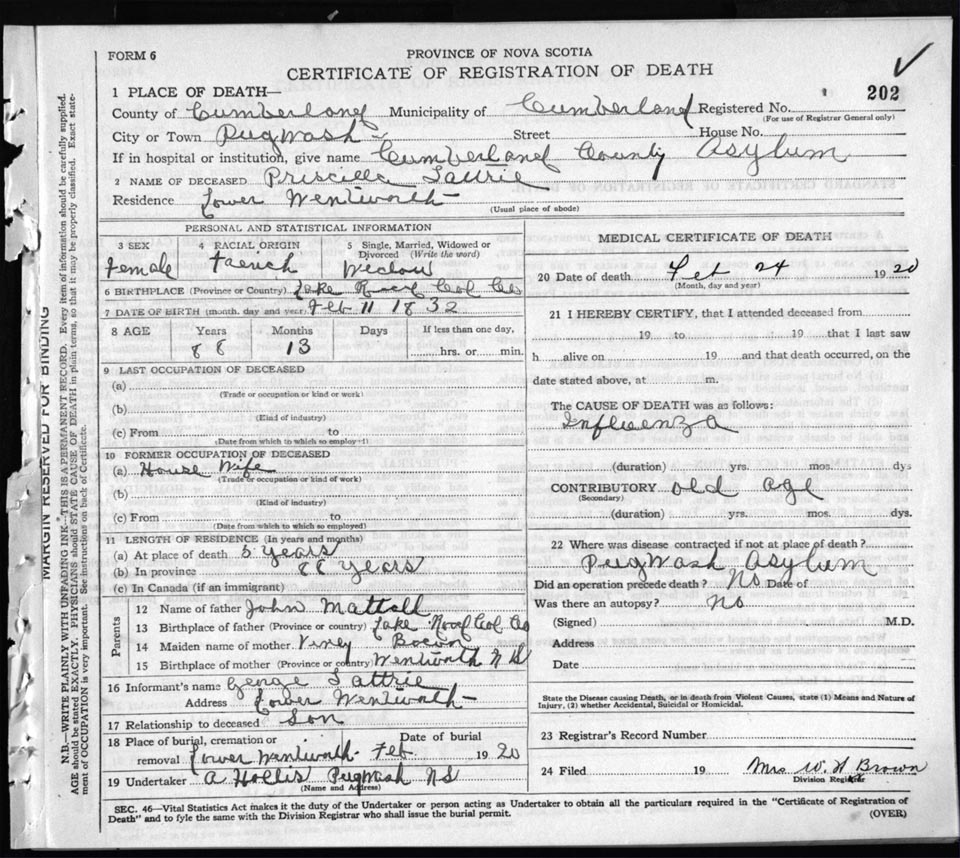 FORM 6
PROVINCE OF NOVA SCOTIA
CERTIFICATE OF REGISTRATION OF DEATH
1 PLACE OF DEATH—
202
County of Cumberland Municipality of Cumberland Registered No.
(For use of Registrar General only)
City or Town Pugwash Street House No.
If in hospital or institution, give name Cumberland County Asylum
2 NAME OF DECEASED Priscilla Tattrie
Residence Lower Wentworth
(Usual place of abode)
PERSONAL AND STATISTICAL INFORMATION
3 SEX 4 RACIAL ORIGIN 5 Single, Married, Widowed or Divorced (Write the word)
Female French Widow
6 BIRTHPLACE (Province or Country) Lake Road Col Co
7 DATE OF BIRTH (month, day and year) Feb 11 1832
8 AGE Years Months Days If less than one day,
88 13 hrs. or min.
9 LAST OCCUPATION OF DECEASED
(a)
(Trade or occupation or kind or work)
(b)
(Kind of industry)
(c) From to
(Date from which to which so employed)
10 FORMER OCCUPATION OF DECEASED
(a) House Wife
(Trade or occupation or kind of work)
(b)
(Kind of industry)
(c) From to
(Date from which to which so employed)
11 LENGTH OF RESIDENCE (In years and months)
(a) At place of death years
(b) In province 88 years
(c) In Canada (if an immigrant)
Parents
12 Name of father John Mattall
13 Birthplace of father (Province or country) Lake Road Col Co
14 Maiden name of mother
15 Birthplace of mother (Province or country) Wentworth N S
16 Informant's name George Tattrie
Address Lower Wentworth
17 Relationship to deceased Son
18 Place of burial, cremation or removal Lower Wentworth Date of burial Feb 1920
19 Undertaker A Hollis Pugwash NS
(Name and Address)
MEDICAL CERTIFICATE OF DEATH
20 Date of death Feb 24 1920
(Month, day and year)
21 I HEREBY CERTIFY, that I attended deceased from
19 to 19 that I last saw
h alive on 19 and that death occurred, on the
date stated above, at m.
The CAUSE OF DEATH was as follows:
Influenza
(duration) yrs. mos. dys
CONTRIBUTORY old age
(Secondary)
(duration) yrs. mos. dys.
22 Where was disease contracted if not at place of death?
Pugwash Asylum
Did an operation precede death? No Date of
Was there an autopsy? No
(Signed) M.D.
Address
Date
State the Disease causing Death, or in death from Violent Causes, state (1) Means and Nature of
Injury, (2) whether Accidental, Suicidal or Homicidal.
23 Registrar's Record Number
24 Filed 19 Mrs W. H Brown
Division Registrar
SEC. 46—Vital Statistics Act makes it the duty of the Undertaker or person acting as Undertaker to obtain all the particulars required in the "Certificate of Registration of
Death" and to fyle the same with the Division Registrar who shall issue the burial permit.
(OVER)
MARGIN RESERVED FOR BINDING
N.B.—WRITE PLAINLY WITH UNFADING INK—THIS IS A PERMANENT RECORD. Every item of information should be carefully supplied.
AGE should be stated EXACTLY. PHYSICIANS should STATE CAUSE OF DEATH in plain terms, so that it may be properly classified. Exact statement
of OCCUPATION is very important. See instructions on back of Certificate.